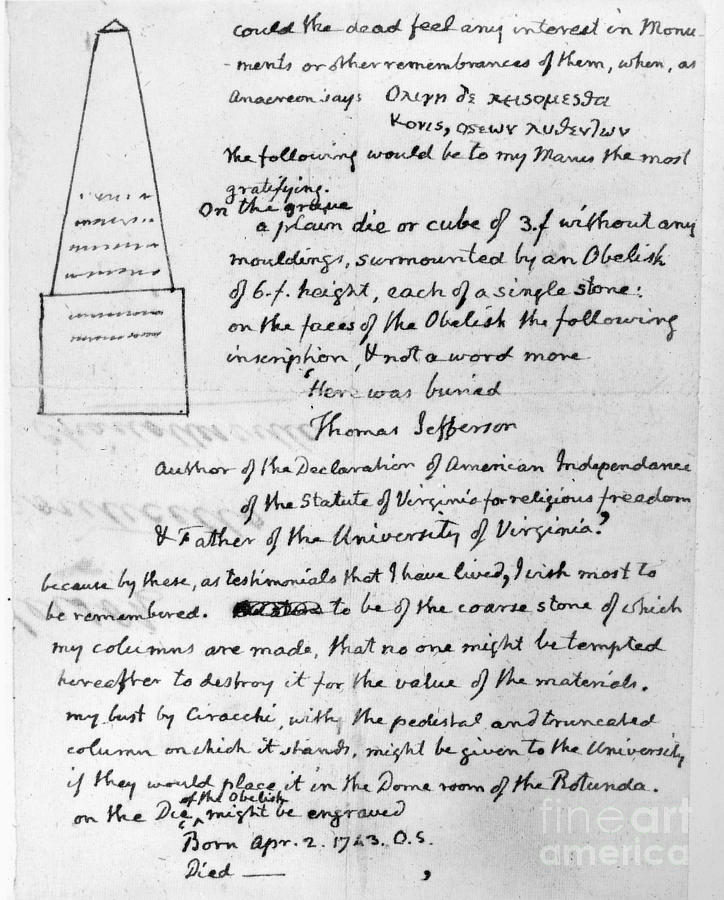 could the dead feel any interest in Monu-
-ments or other remembrances of them, when, as
Anacreon says Ολιγη δε κεισομεσθα
Κονις, οσεων λυθεντων
the following would be to my Manes the most
gratifying.
On the grave
a plain die or cube of 3.f without any
mouldings, surmounted by an Obelisk
of 6.f. height, each of a single stone:
on the faces of the Obelisk the following
inscription, & not a word more
'Here was buried
Thomas Jefferson
Author of the Declaration of American Independance
of the Statute of Virginia for religious freedom
& Father of the University of Virginia.'
because by these, as testimonials that I have lived, I wish most to
be remembered. to be of the coarse stone of which
my columns are made, that no one might be tempted
hereafter to destroy it for the value of the materials.
my bust by Ciracchi, with the pedestal and truncated
column on which it stands, might be given to the University
if they would place it in the Dome room of the Rotunda.
on the Die of the Obelisk might be engraved
Born Apr. 2. 1743. O.S.
Died —
fineart
america